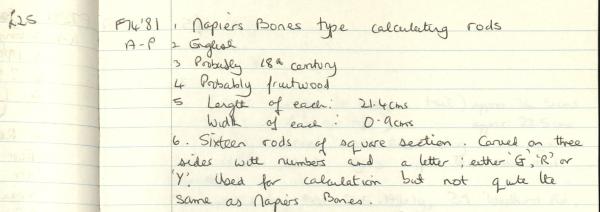 £25 F74'81 1. Napiers Bones type calculating rods
A-P 2 English
3 Probably 18th century
4 Probably fruitwood
5 Length of each: 21.4cms
Width of each: 0.9cms
6. Sixteen rods of square section. Carved on three
sides with numbers and a letter; either 'G', 'R' or
'Y'. Used for calculation but not quite the
same as Napiers Bones.